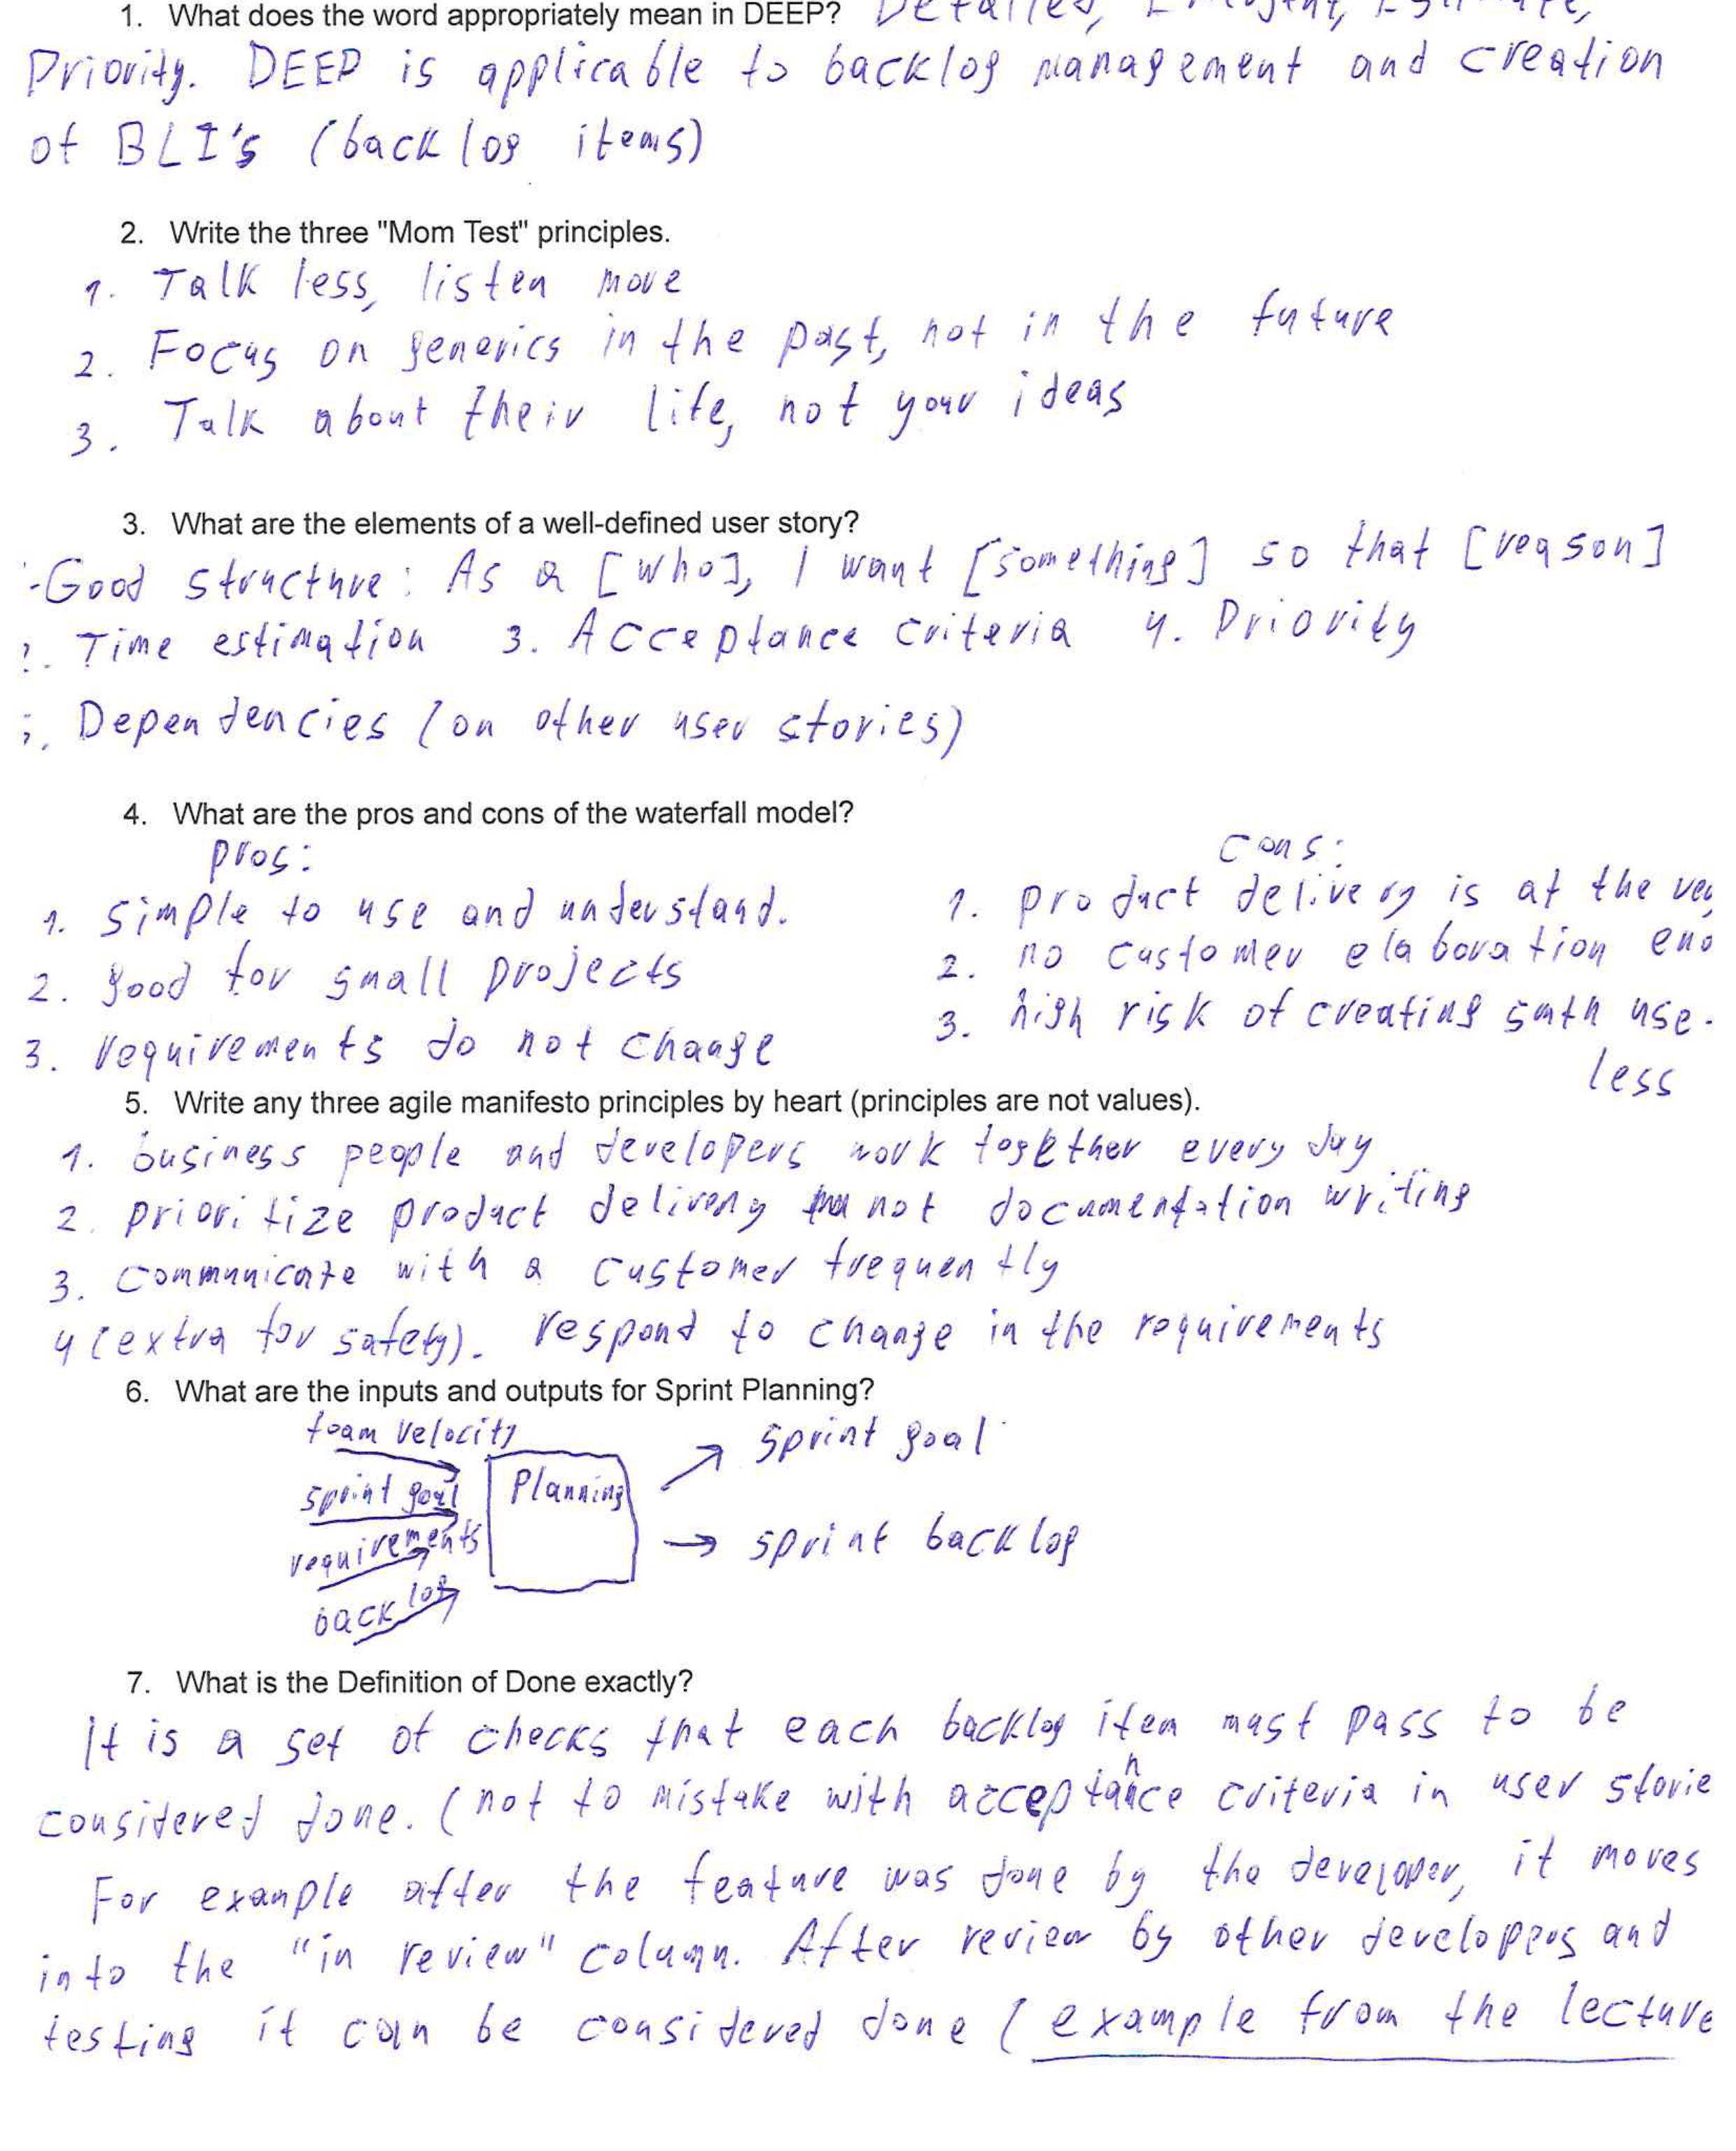 1. What does the word appropriately mean in DEEP? Detailed, Emergent, Estimate,
Priority. DEEP is applicable to backlog management and creation
of BLI's (backlog items)
2. Write the three "Mom Test" principles.
1. Talk less, listen more
2. Focus on generics in the past, not in the future
3. Talk about their life, not your ideas
3. What are the elements of a well-defined user story?
-Good structure: As a [who], I want [something] so that [reason]
2. Time estimation 3. Acceptance criteria 4. Priority
5. Dependencies (on other user stories)
4. What are the pros and cons of the waterfall model?
pros: cons:
1. simple to use and understand. 1. product delivery is at the very
2. good for small projects 2. no customer elaboration end
3. requirements do not change 3. high risk of creating smth use-
less
5. Write any three agile manifesto principles by heart (principles are not values).
1. business people and developers work together every day
2. prioritize product delivery not documentation writing
3. communicate with a customer frequently
4 (extra for safety). respond to change in the requirements
6. What are the inputs and outputs for Sprint Planning?
team velocity sprint goal
sprint goal Planning
requirements sprint backlog
backlog
7. What is the Definition of Done exactly?
It is a set of checks that each backlog item must pass to be
considered done. (not to mistake with acceptance criteria in user storie
For example after the feature was done by the developer, it moves
into the "in review" column. After review by other developers and
testing it can be considered done (example from the lecture